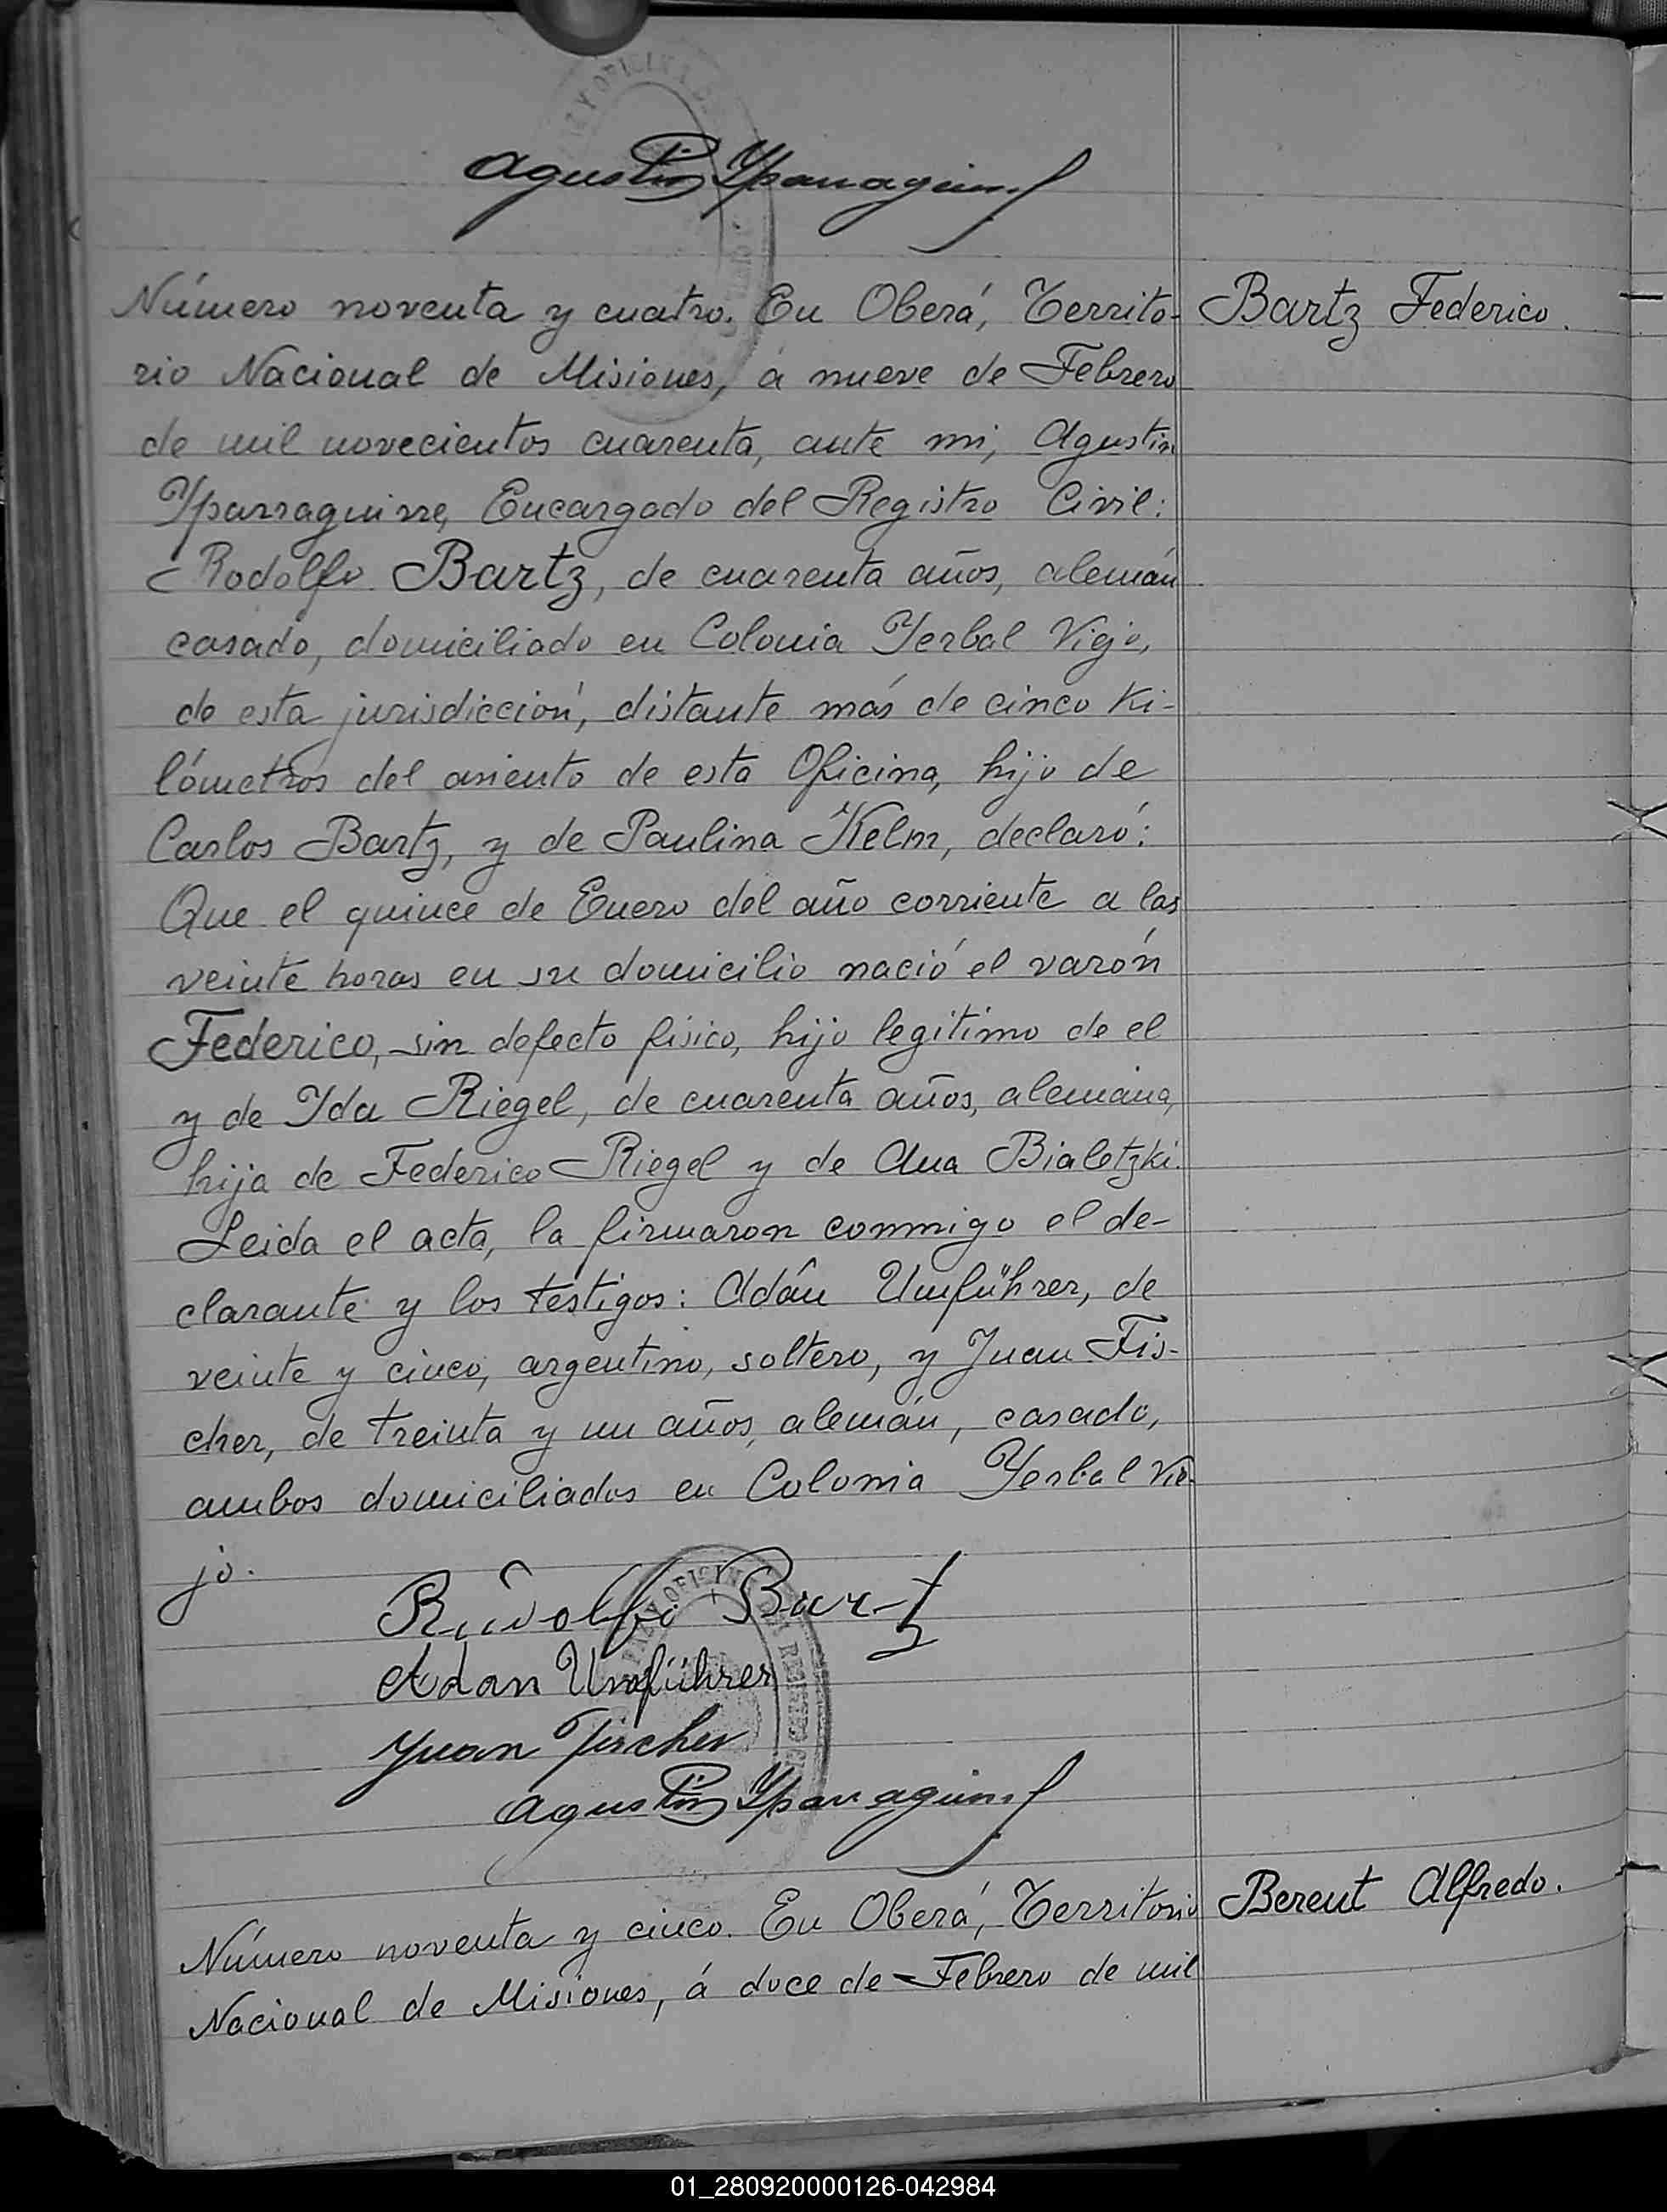 Agustin Yparraguirre
Número noventa y cuatro. En Oberá, Territo- Bartz Federico.
rio Nacional de Misiones, á nueve de Febrero
de mil novecientos cuarenta, ante mi, Agustin
Yparraguirre, Encargado del Registro Civil:
Rodolfo Bartz, de cuarenta años, alemán
casado, domiciliado en Colonia Yerbal Viejo,
de esta jurisdicción, distante más de cinco ki-
lómetros del asiento de esta Oficina, hijo de
Carlos Bartz, y de Paulina Kelm, declaró:
Que el quince de Enero del año corriente a las
veinte horas en su domicilio nació el varón
Federico, sin defecto fisico, hijo legitimo de el
y de Yda Riegel, de cuarenta años, alemana,
hija de Federico Riegel y de Ana Bialetzki.
Leida el acta, la firmaron conmigo el de-
clarante y los testigos: Adán Umführer, de
veinte y cinco, argentino, soltero, y Juan Fis-
cher, de treinta y un años, alemán, casado,
ambos domiciliados en Colonia Yerbal Vie-
jo.
Rudolfo Bartz
Adan Umführer
Juan Fischer
Agustin Yparraguirre
Número noventa y cinco. En Oberá, Territorio Berent Alfredo.
Nacional de Misiones, á doce de Febrero de mil
01_280920000126-042984